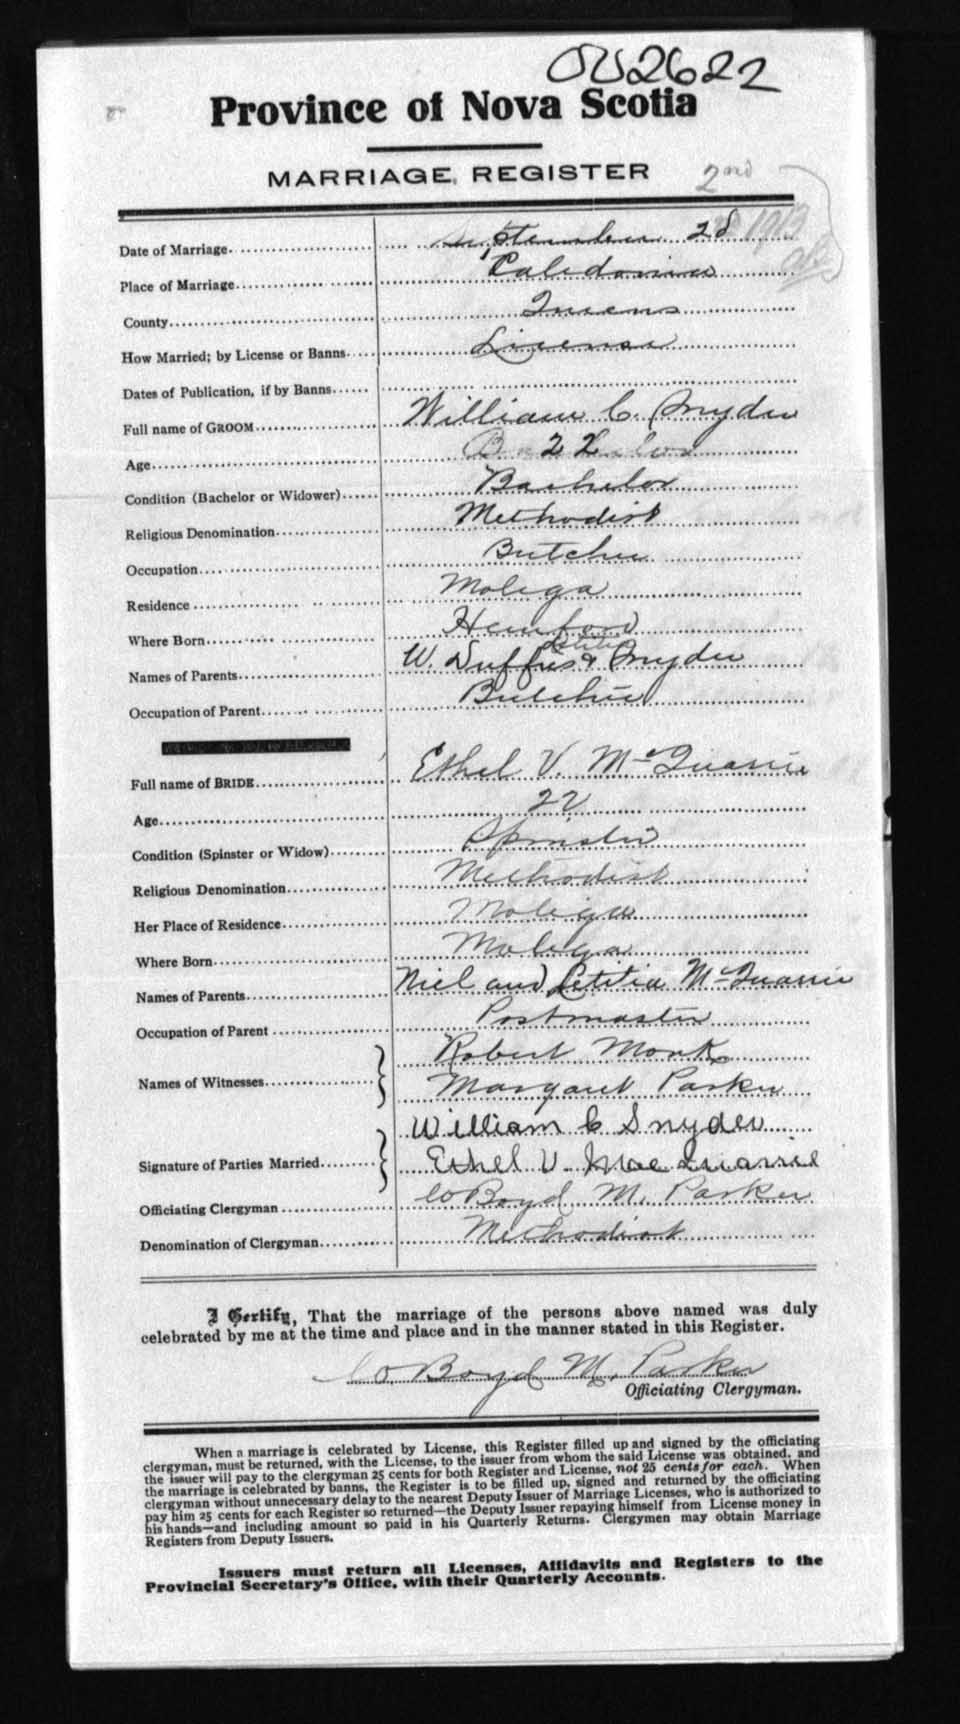 OU2622
Province of Nova Scotia
MARRIAGE REGISTER
2nd
Date of Marriage September 28 1913
Place of Marriage Caledonia
County Queens
How Married; by License or Banns License
Dates of Publication, if by Banns
Full name of GROOM William C. Snyder
Age 22
Condition (Bachelor or Widower) Bachelor
Religious Denomination Methodist
Occupation Butcher
Residence Molega
Where Born Hemford
Names of Parents W. Duffus & Letitia Snyder
Occupation of Parent Butcher
Full name of BRIDE Ethel V. McQuarrie
Age 22
Condition (Spinster or Widow) Spinster
Religious Denomination Methodist
Her Place of Residence Molega
Where Born Molega
Names of Parents Niel and Letitia McQuarrie
Occupation of Parent Postmaster
Names of Witnesses Robert Monk
Margaret Parker
Signature of Parties Married William C Snyder
Ethel V. MacQuarrie
Officiating Clergyman W Boyd M. Parker
Denomination of Clergyman Methodist
I Certify, That the marriage of the persons above named was duly
celebrated by me at the time and place and in the manner stated in this Register.
W. Boyd M. Parker
Officiating Clergyman.
When a marriage is celebrated by License, this Register filled up and signed by the officiating
clergyman, must be returned, with the License, to the issuer from whom the said License was obtained, and
the issuer will pay to the clergyman 25 cents for both Register and License, not 25 cents for each. When
the marriage is celebrated by banns, the Register is to be filled up, signed and returned by the officiating
clergyman without unnecessary delay to the nearest Deputy Issuer of Marriage Licenses, who is authorized to
pay him 25 cents for each Register so returned—the Deputy Issuer repaying himself from License money in
his hands—and including amount so paid in his Quarterly Returns. Clergymen may obtain Marriage
Registers from Deputy Issuers.
Issuers must return all Licenses, Affidavits and Registers to the
Provincial Secretary's Office, with their Quarterly Accounts.